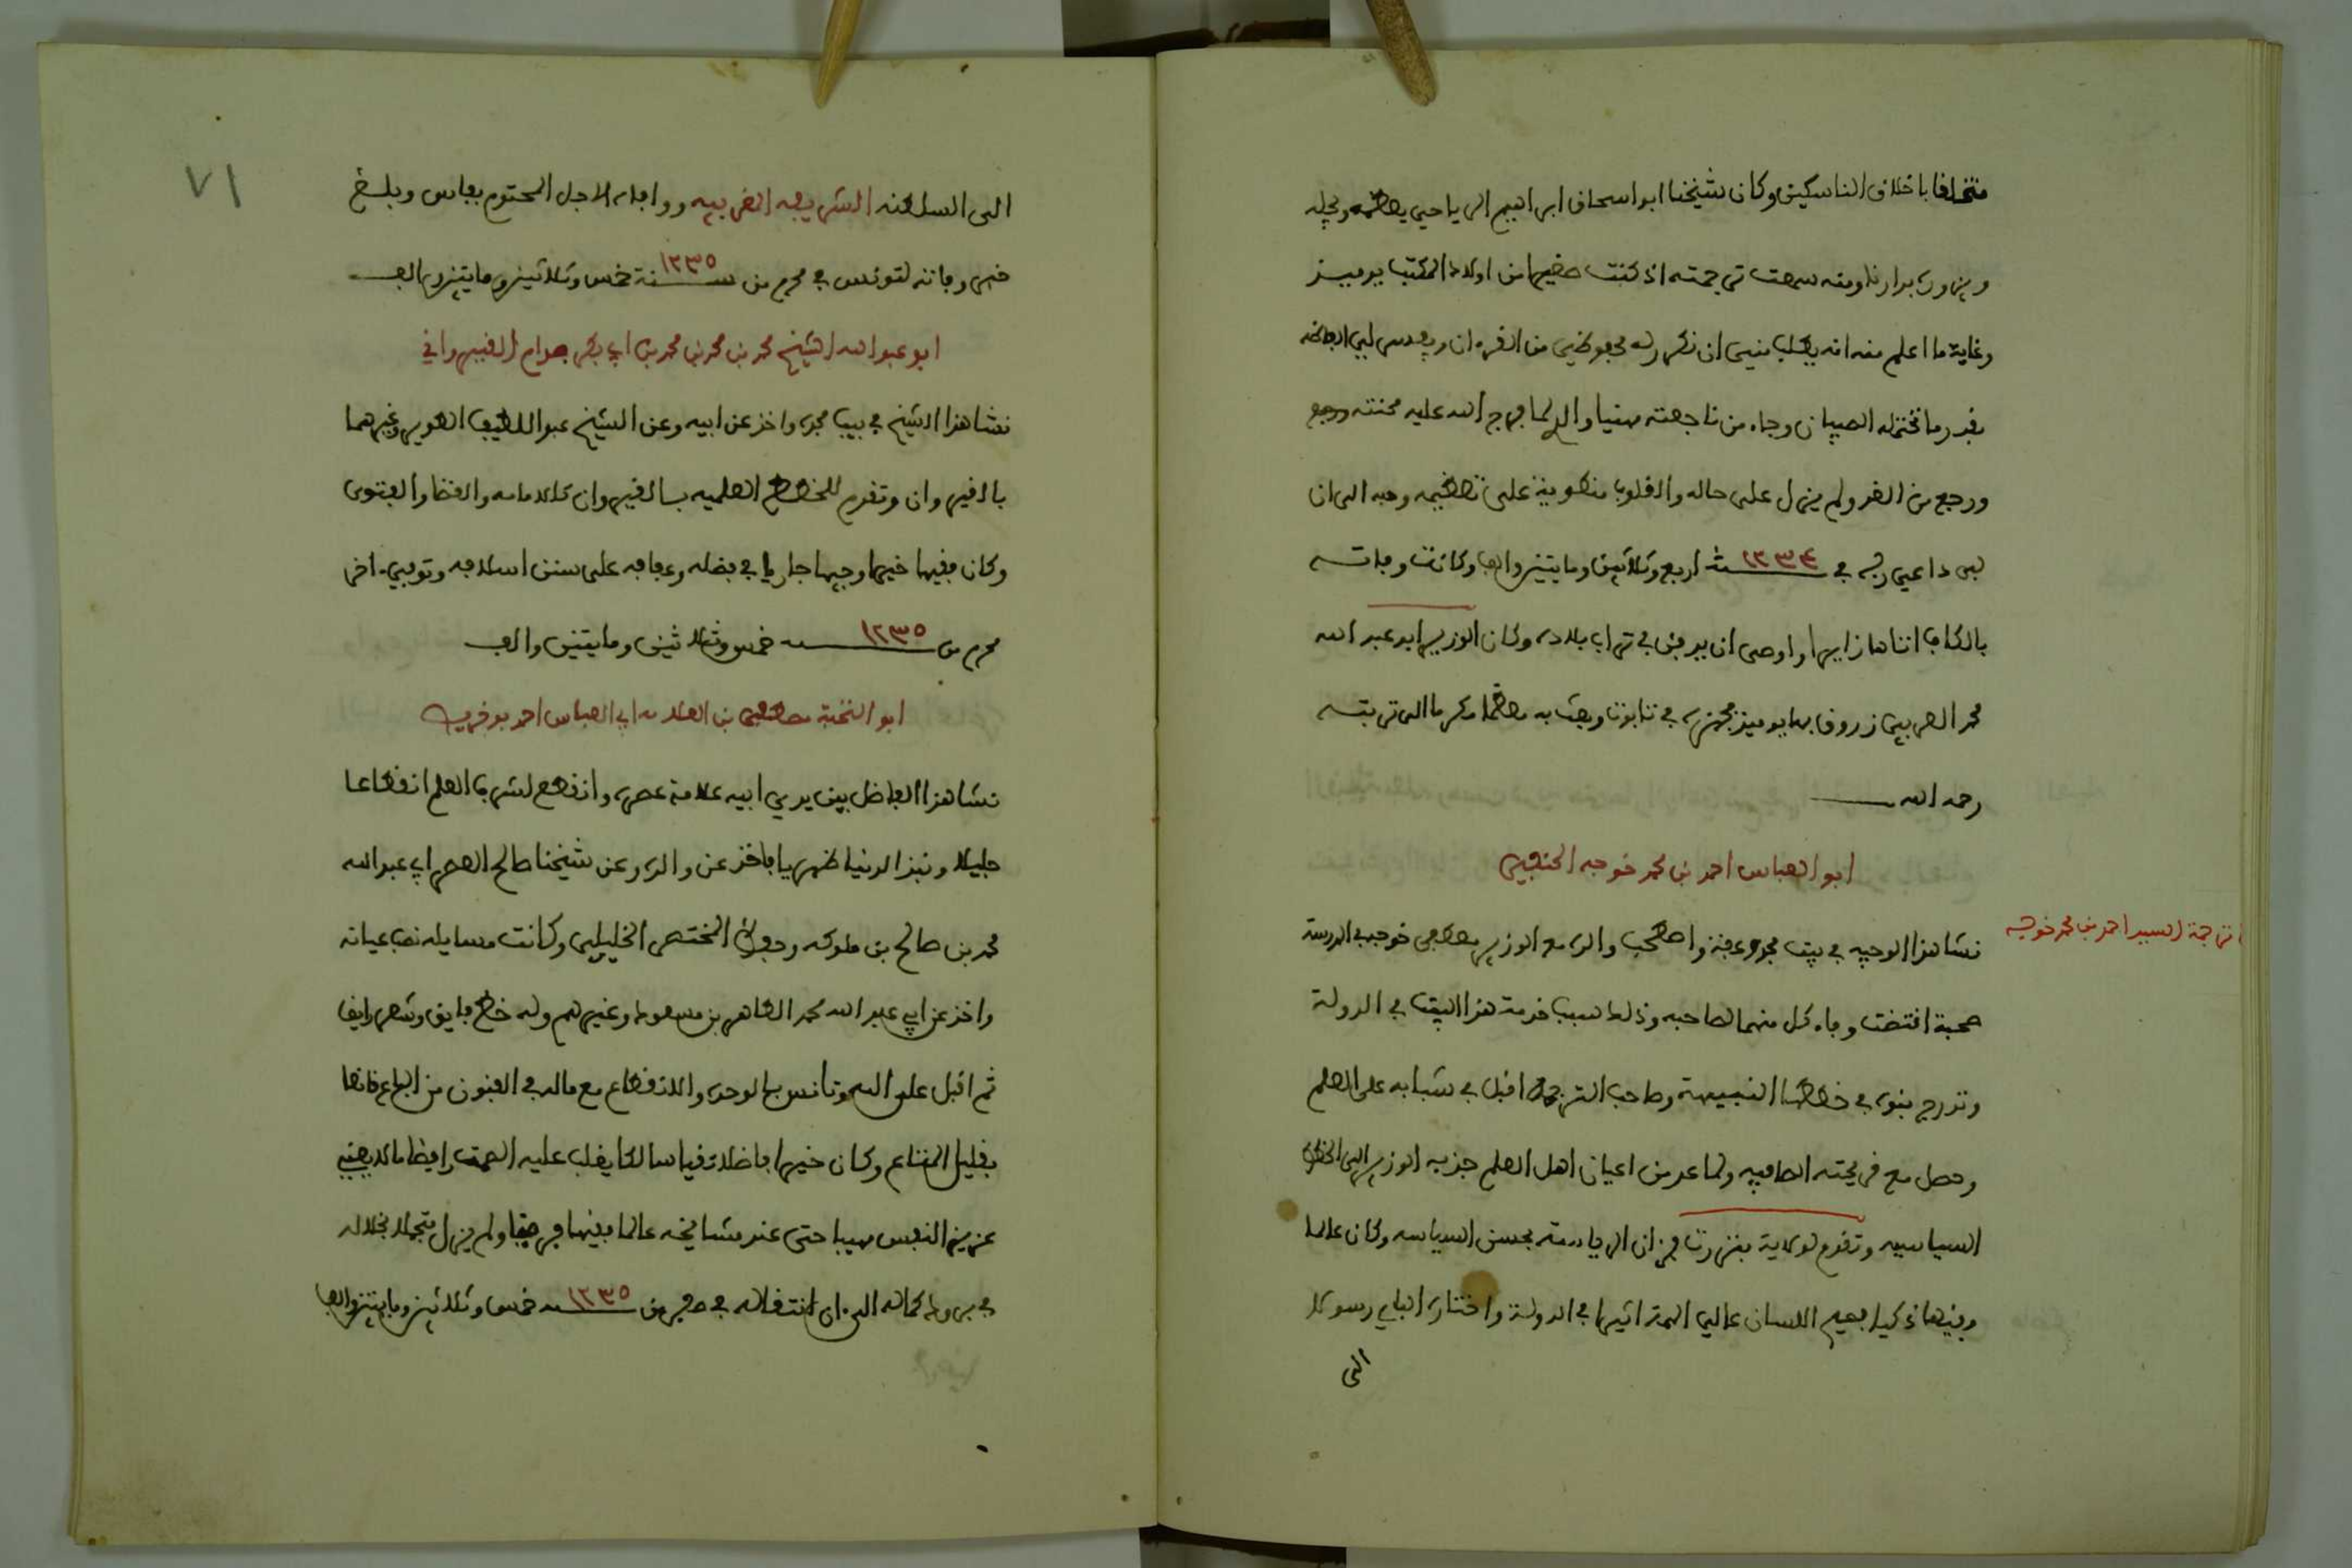 متخلقا باخلاق الناسكين وكان شيخنا ابو اسحاق ابراهيم الرياحي يعظمه ويجله
ويزوره بدارنا ومنه سمعت ترجمته اذ كنت صغيرا من اولاد المكتب يوميذ
وغاية ما اعلم منه انه يطلب مني ان نكرر له محفوظي من القرءان ويفسر لي الفاظه
بقدر ما تحتمله الصبيان وجاء من ناجعته مهنيا والدي لما فرج الله عليه محنته ورجع
ورجع من الغد ولم يزل على حاله والقلوب منطوية على تعظيمه وحبه الى ان
لبى داعي ربه في سنة ١٢٣٤ اربع وثلاثين ومايتين والف وكانت وفاته
بالكاف اتاها زايرا واوصى ان يدفن في تراب بلاده وكان الوزير ابو عبد الله
محمد العربي زروق بها يوميذ فجهزه في تابوت وبعث به معظما مكرما الى تربته
رحمه الله
ابو العباس احمد بن محمد خوجه الحنفي
ترجمة السيد احمد بن محمد خوجه
نشا هذا الوجيه في بيت مجد وعفة واصطحب والده مع الوزير مصطفى خوجه في المدرسة
صحبة اقتضت وفاء كل منهما لصاحبه وذلك سبب خدمة هذا البيت في الدولة
وتدرج بنوه في خططها النبيهة وصاحب الترجمة اقبل في شبابه على العلم
وحصل مع قريحته الصافيه ولما عد من اعيان اهل العلم جذبه الوزير الى الخطة
السياسيه وتقدم لولاية بنزرت فزان الرياسة بحسن السياسه وكان عالما
وفقيها ذكيا فصيح اللسان عالي الهمة اثيرا في الدولة واختاره الباي رسولا
الى
٧١
الى السلطنه الشريفه الغربيه ووافاه الاجل المحتوم بفاس وبلغ
خبر وفاته لتونس في محرم من سنة ١٢٣٥ خمس وثلاثين ومايتين والف
ابو عبد الله الشيخ محمد بن محمد بن محمد بن ابي بكر صدام القيرواني
نشا هذا الشيخ في بيت مجده واخذ عن ابيه وعن الشيخ عبد اللطيف الطوير وغيرهما
بالقيروان وتقدم للخطط العلميه بالقيروان كالامامه والقضا والفتوى
وكان فقيها خيرا وجيها جاريا في فضله وعفافه على سنن اسلافه وتوفي اخر
محرم من سنة ١٢٣٥ خمس وثلاثين ومايتين والف
ابو النخبة مصطفى بن العلامه ابي العباس احمد بوخريص
نشا هذا الفاضل بين يدي ابيه علامة عصره وانقطع لشرف العلم انقطاعا
جليلا ونبذ الدنيا ظهريا فاخذ عن والده وعن شيخنا صالح العصر ابي عبد الله
محمد بن صالح بن ملوكه وحفظ المختصر الخليلي وكانت مسايله نصب عيانه
واخذ عن ابي عبد الله محمد الطاهر بن مسعود وغيرهم وله خط فايق وشعر رايق
ثم اقبل على الله وتانس بالوحده والانقطاع مع ماله في الفنون من الباع قانعا
بقليل المتاع وكان خيرا فاضلا تقيا سالكا يغلب عليه الصمت رافضا ما لا يعنيه
عزيز النفس مهيبا حتى عند مشايخه عالما فقيها فرضيا ولم يزل متجملا بخلاله
في برود كماله الى ان انتقاله في صفر من سنة ١٢٣٥ خمس وثلاثين ومايتين والف